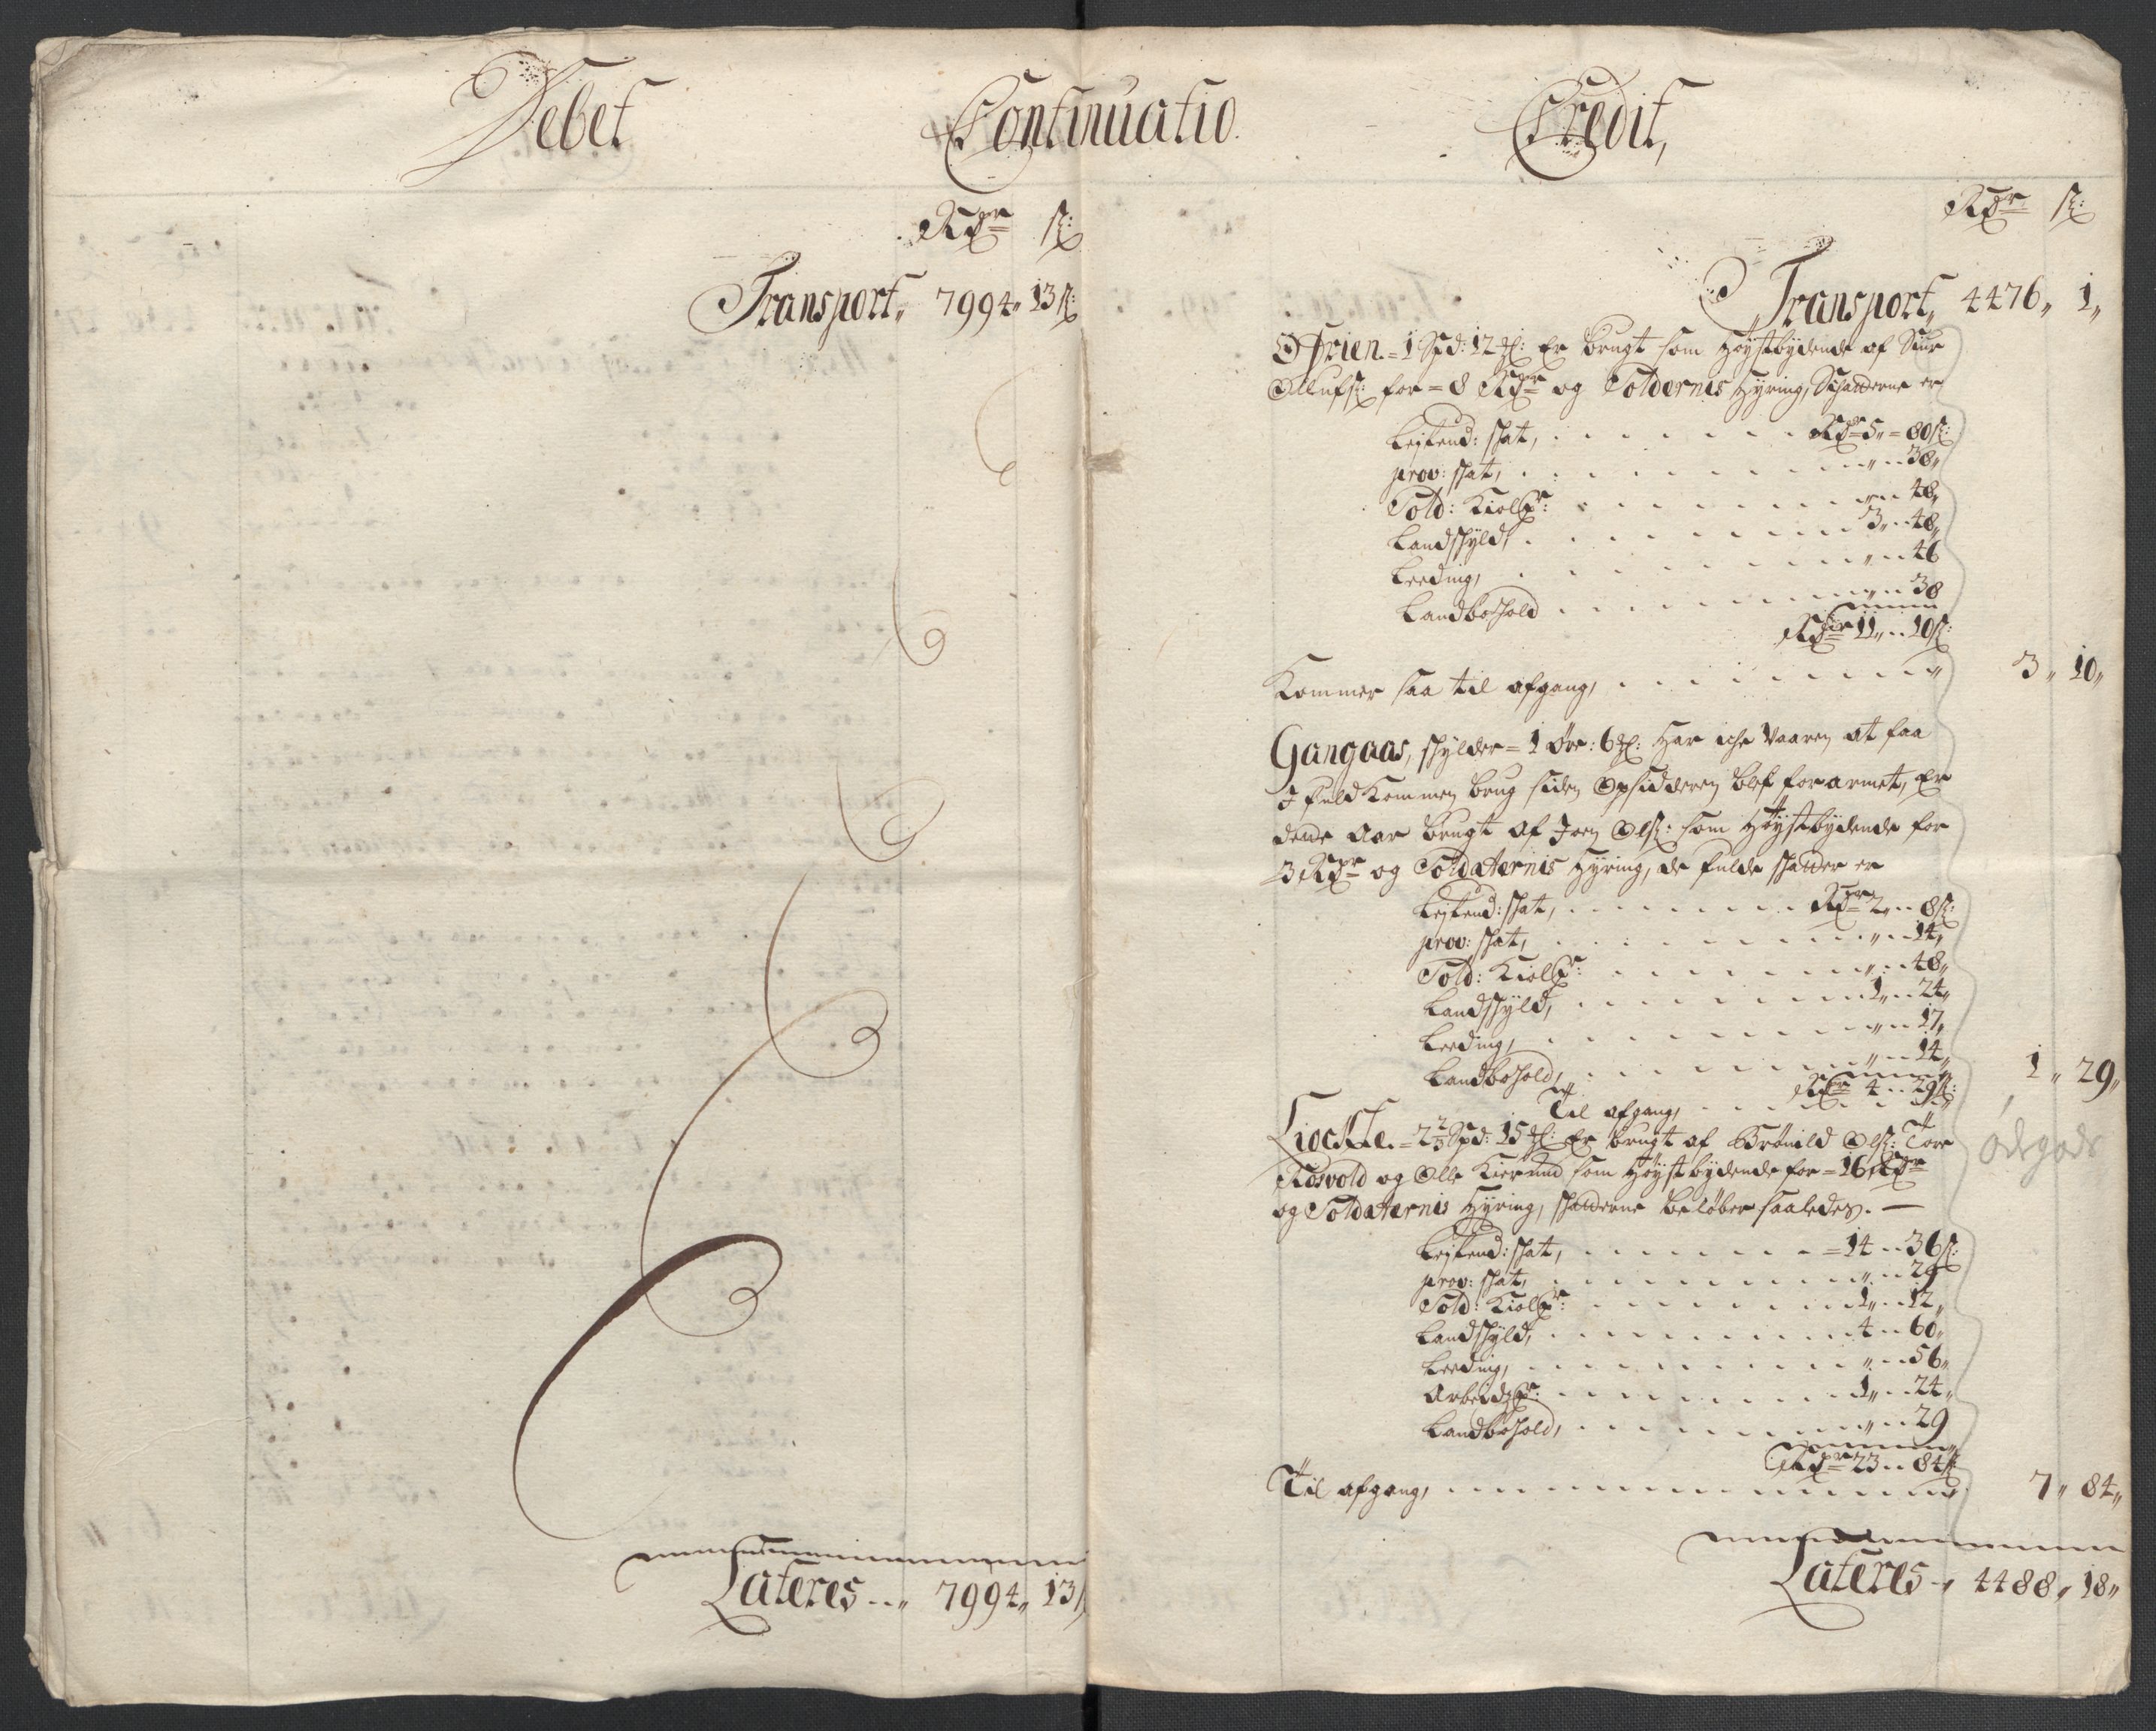 Debet Continuatio. Credit,
Rdr ß:
Transport,, 7994,, 13 ß:
Lateres - - ,, 7994,, 13 ß
Rdr ß:
Transport,, 4476,, 1,,
1 Spd: 12 ʒl: Er brugt som Høystbydende af Siur
Ollufß: for = 8 Rdr og Soldternis Hyring, Schatterne er
Leylend: skat, Rdr 5,, = 80 ß:
prov: skat, ,, - - 38,,
Sold: Kiolpr: ,, - - 48,,
Landskyld, 3,, - - 48,,
Leeding, ,, - - 46
Landbohold ,, - - 38
Rdr 11,, - - 10 ß:
Kommer saa til afgang, 3,, 10,,
Gangaas, skylder = 1 Øre: 6 ʒl: Har iche Vaaren at faa
J fuldkommen brug siden Opsidderen blef forarmet, Er
dette Aar brugt af Joen Olß: som Høystbydende for
3 Rdr og Soldaternis Hyring, de fulde skatter er
Leylend: skat, Rdr 2,, - - 8 ß:
prov: skat, ,, - - 14,,
Sold: Kiolpr: ,, - - 48,,
Landskyld, 1,, - - 24,,
Leeding, ,, - - 17,,
Landbohold, ,, - - 14,,
Rdr 4 - - 29 ß:
Til afgang, 1,, 29,,
2 2/3 Spd: 15 ʒl: Er brugt af Brønild Olß: Tore
og Olle som Høystbydende for = 16 Rdr
Ødegods
og Soldaternis Hyring, skatterne beløber saaledes. —
Leylend: skat, = 14 - - 36 ß:
prov: skat, ,, - - 29
Sold: Kiolpr: 1,, - - 12,,
Landskyld, 4 - - 60,,
Leeding, ,, - - 56,,
Arbeidzpr: 1,, - - 24,,
Landbohold, ,, - - 29
Rdr 23 - - 84 ß
Til afgang, 7,, 84,,
Lateres - ,, 4488,, 18,,